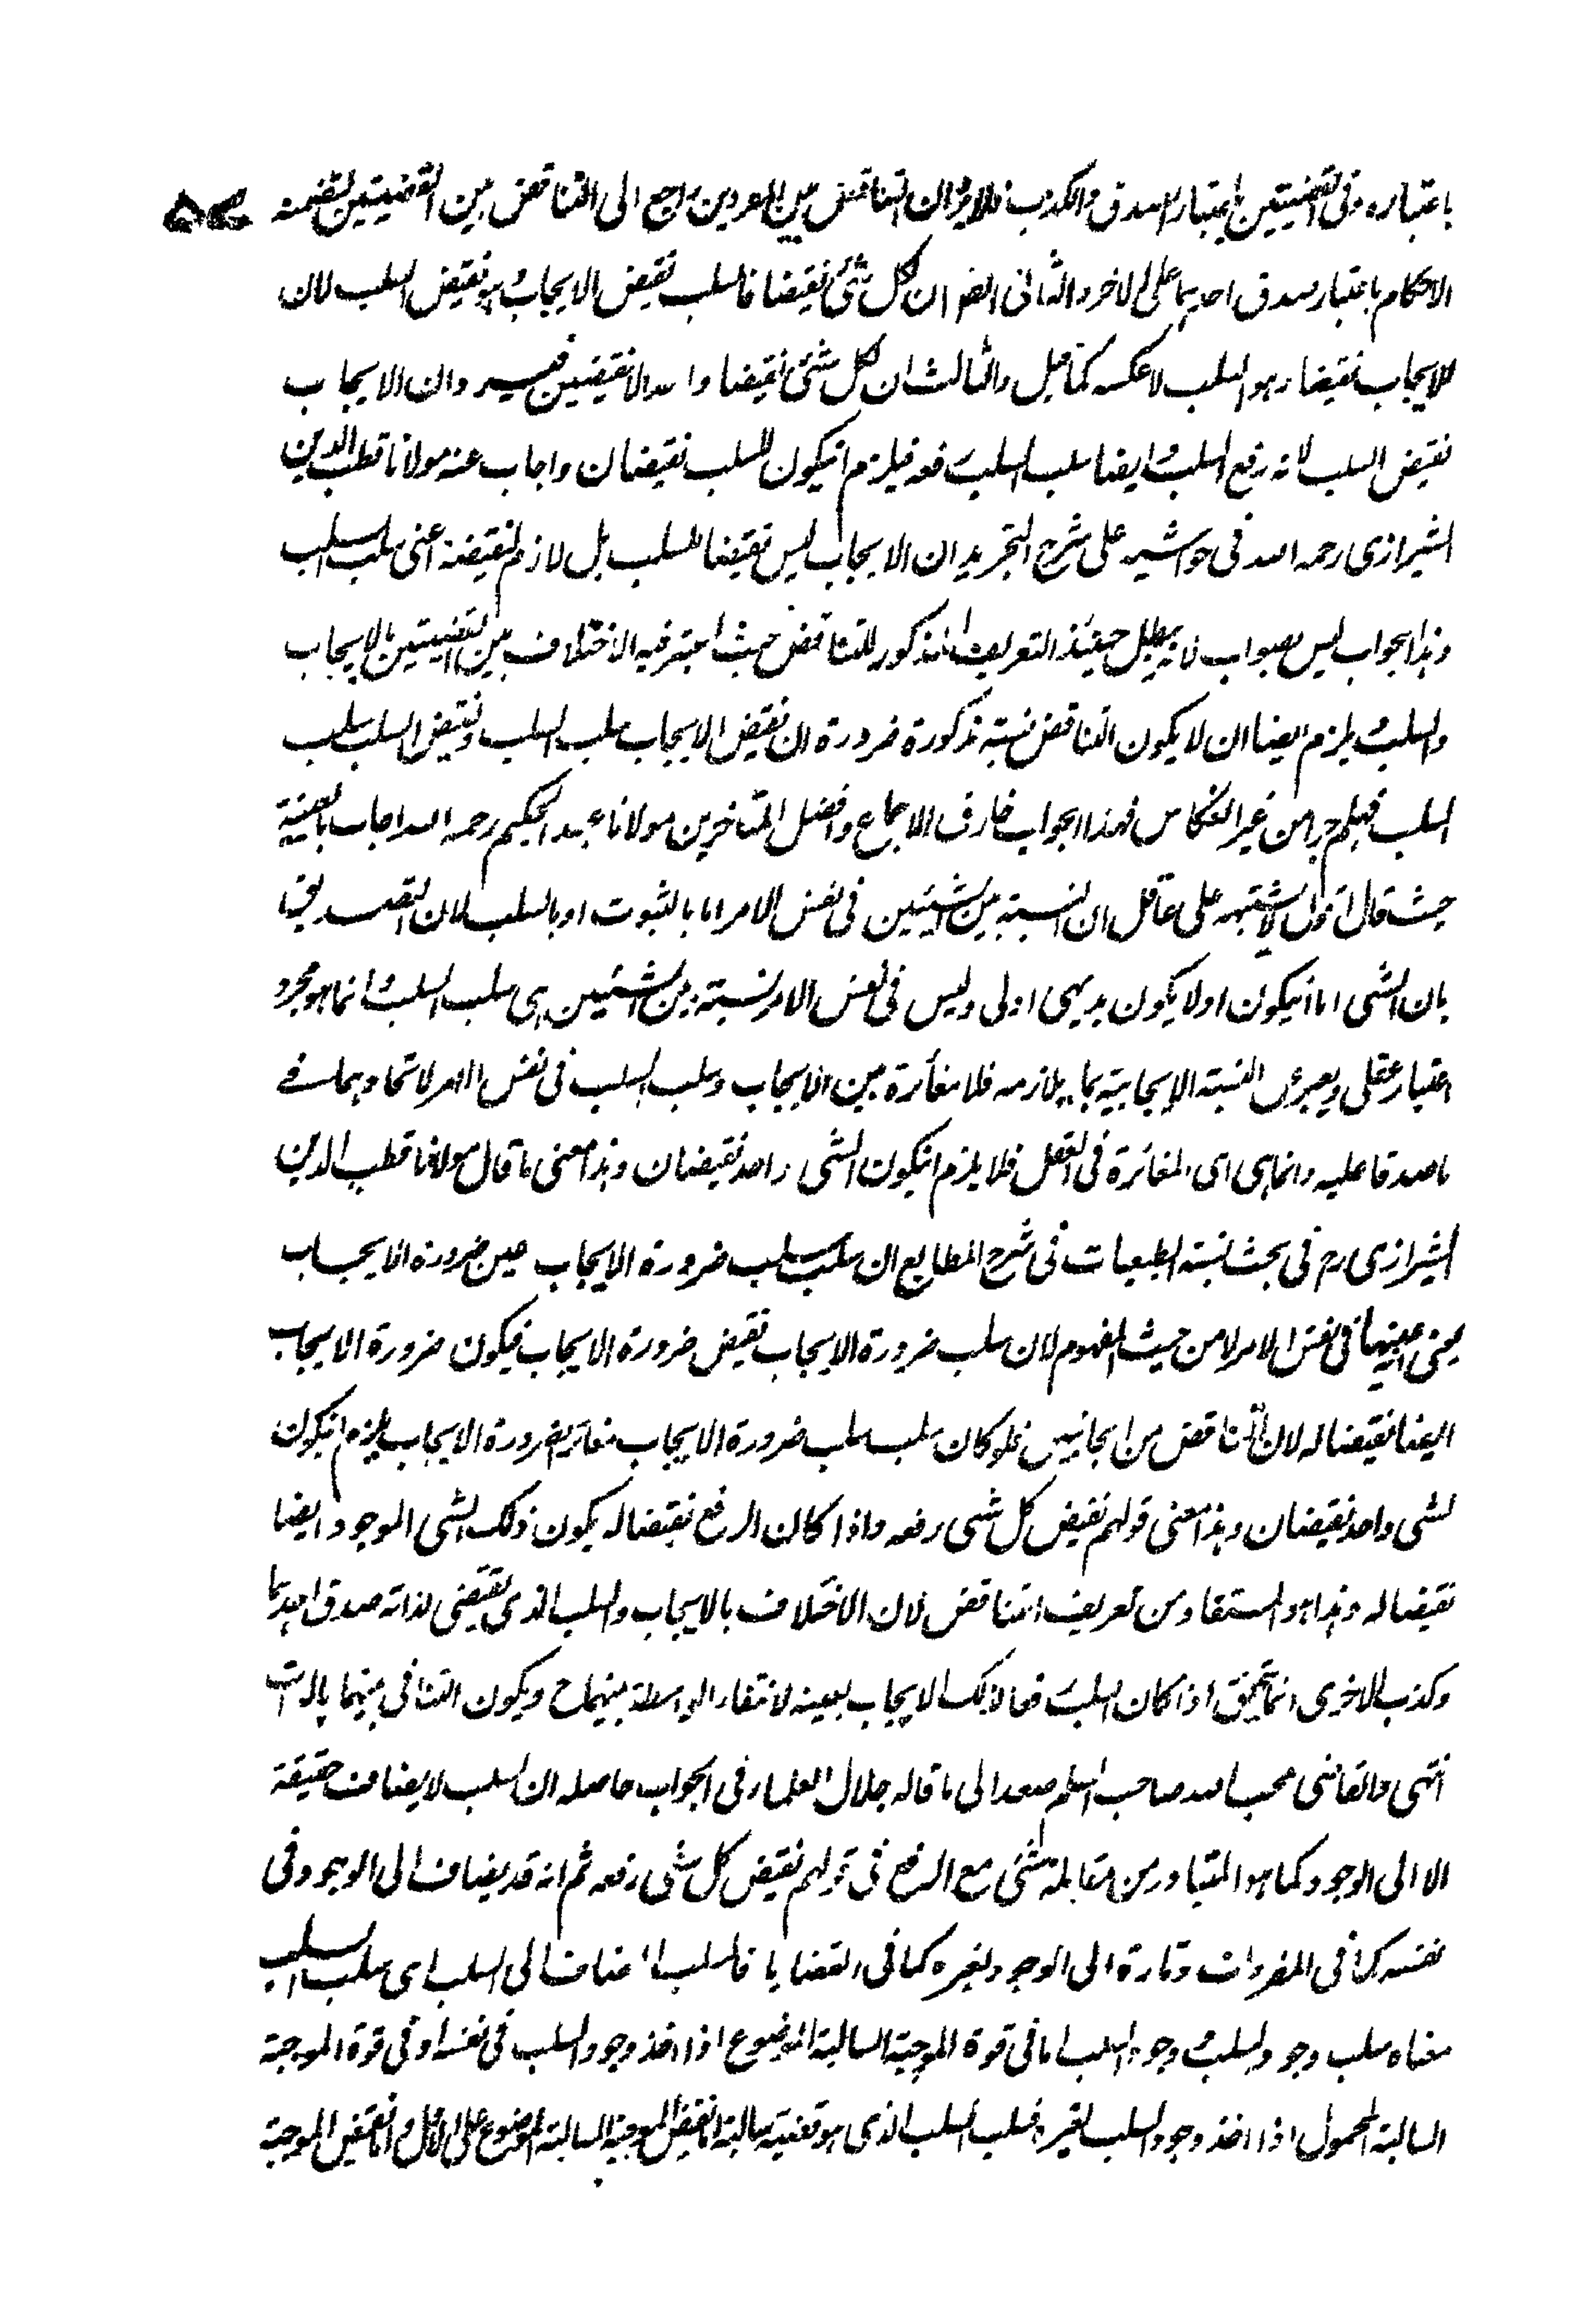 باعتباره وفى القضيتين باعتبار الصدق والكذب فلا يرد ان التناقض بين المفردين راجع الى التناقض بين القضيتين لتضمنه
الاحكام باعتبار صدق احديهما على الاخر والثانى انهم ان لكل شئ نقيضا فالسلب نقيض الايجاب وهو نقيض السلب لان
للايجاب نقيضا وهو السلب لا عكسه كما قيل والثالث ان لكل شئ نقيضا واحدا لا نقيضين فيه وان الايجاب
نقيض السلب لانه رفع السلب وايضا سلب السلب رفعه فيلزم انيكون للسلب نقيضان واجاب عنه مولانا قطب الدين
الشيرازى رحمه الله فى حواشيه على شرح التجريد ان الايجاب ليس نقيضا للسلب بل لازم لنقيضه اعنى سلب السلب
وهذا الجواب ليس بصواب لانه يبطل حينئذ التعريف المذكور للتناقض حيث اعتبر فيه الاختلاف بين القضيتين بالايجاب
والسلب ويلزم ايضا ان لا يكون التناقض نسبة مذكورة ضرورة ان نقيض الايجاب سلب السلب ونقيض السلب سلب
السلب فيلزم من غير انعكاس فهذا الجواب خارق الاجماع وافضل المتاخرين مولانا عبد الحكيم رحمه الله اجاب بالعينية
حيث قال اقول لا يشتبه على عاقل ان النسبة بين الشيئين فى نفس الامر اما بالثبوت او بالسلب لان التصديق
بان الشى اما انيكون اولا يكون بديهى اولى وليس فى نفس الامر نسبة بين الشيئين هى سلب السلب وانما هو مجرد
اعتبار عقلى ويعبر عن النسبة الايجابية بما يلازمه فلا مغائرة بين الايجاب وسلب السلب فى نفس الامر لاتحادهما فے
ما صدقا عليه وانما هى اى المغائرة فى العقل فلا يلزم انيكون لشى واحد نقيضان وهذا معنى ما قال مولانا قطب الدين
الشيرازى رح فى بحث نسبة الطبعيات فى شرح المطالع ان سلب سلب ضرورة الايجاب عين ضرورة الايجاب
يعنى عينها فى نفس الامر لا من حيث المفهوم لان سلب ضرورة الايجاب نقيض ضرورة الايجاب فيكون ضرورة الايجاب
ايضا نقيضا له لان التناقض من الجانبين فلو كان سلب سلب ضرورة الايجاب مغائر لضرورة الايجاب يلزم انيكون
لشى واحد نقيضان وهذا معنى قولهم نقيض كل شى رفعه واذا كان الرفع نقيضا له يكون ذلك الشى الموجود ايضا
نقيضا له وهذا هو المستفاد من تعريف التناقض لان الاختلاف بالايجاب والسلب الذى يقتضى لذاته صدق احديهما
وكذب الاخرى انما يتحقق اذا كان السلب رفعا لذلك الايجاب بعينه لانتفاء الواسطة بينهما ح ويكون التنافى بينهما بالذات
انتهى والقاضى محب الله صاحب السلم صعد الى ما قاله جلال العلماء فى الجواب حاصله ان السلب لا يضاف حقيقة
الا الى الوجود كما هو المتبادر من مقابلة الشئ مع الرفع فى قولهم نقيض كل شى رفعه ثم انه قد يضاف الى الوجود فى
نفسه كما فى المفردات وتارة الى الوجود لغيره كما فى القضايا فالسلب المضاف الى السلب اى سلب السلب
معناه سلب وجود السلب ووجود السلب اما فى قوة الموجبة السالبة الموضوع اذا اخذ وجود السلب فى نفسه او فى قوة الموجبة
السالبة المحمول اذا اخذ وجود السلب لغيره فسلب السلب الذى هو قضية سالبة اما نقيض الموجبة السالبة الموضوع على الاول واما نقيض الموجبة